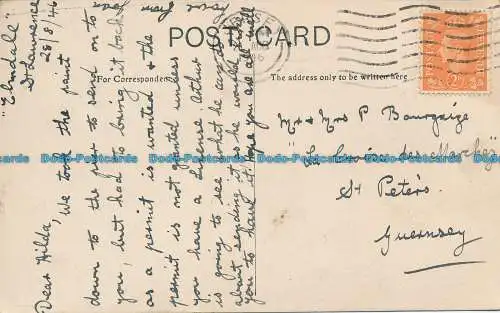 POST CARD
For Correspondence
The address only to be written here.
"Elmdale"
St Lawrence
28/8/46
Dear Hilda,
We took the paint
down to the post to send on to
you, but had to bring it back
as a permit is wanted & the
permit is not granted unless
you have a lisense. Arthur
is going to see what he can do
about sending it as he would like
you to have it. Hope you are all well
love from
Mr & Mrs P Bourgaize
des Marchez
St Peter's
Guernsey
Dodo-Postcards Dodo-Postcards Dodo-Postcards